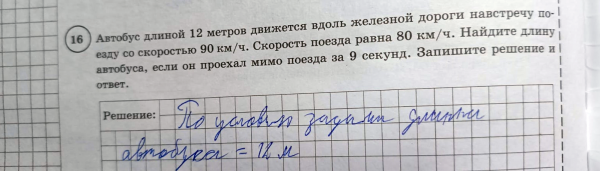 16 Автобус длиной 12 метров движется вдоль железной дороги навстречу по-
езду со скоростью 90 км/ч. Скорость поезда равна 80 км/ч. Найдите длину
автобуса, если он проехал мимо поезда за 9 секунд. Запишите решение и
ответ.
Решение: По условию задачи длина
автобуса = 12 м